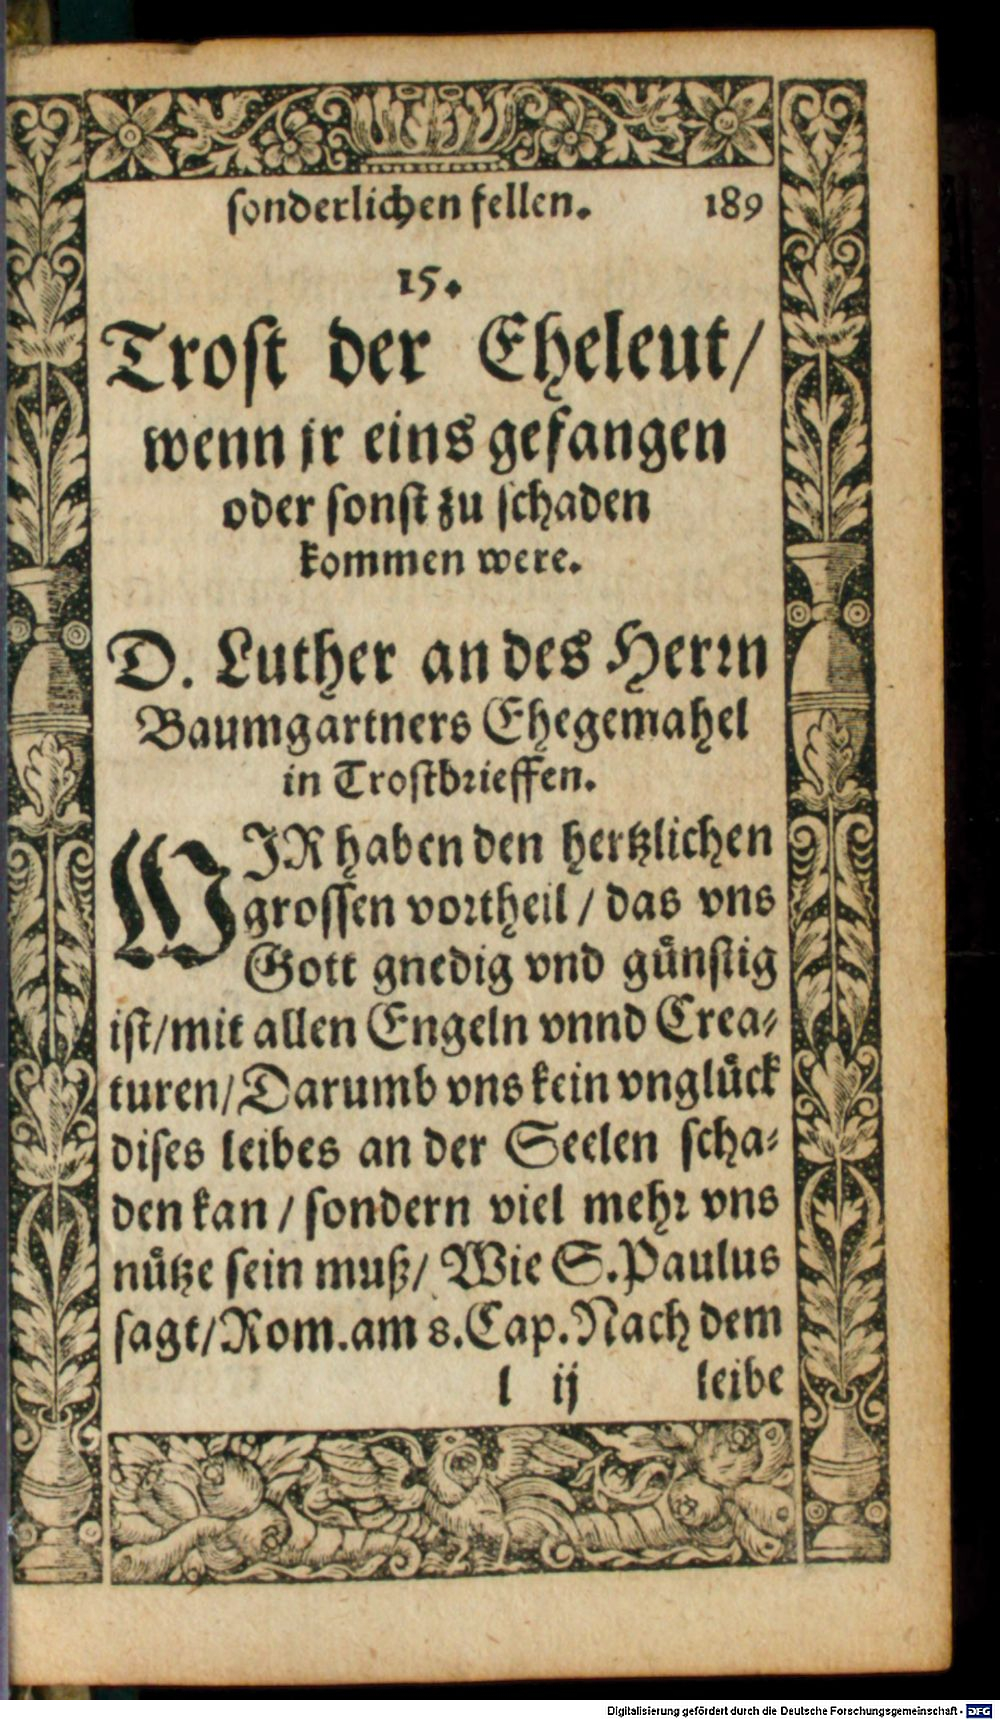 sonderlichen fellen. 189
15.
Trost der Eheleut/
wenn jr eins gefangen
oder sonst zu schaden
kommen were.
D. Luther an des Herrn
Baumgartners Ehegemahel
in Trostbrieffen.
WIR haben den hertzlichen
grossen vortheil / das vns
Gott gnedig vnd guͤnstig
ist/mit allen Engeln vnnd Crea⸗
turen/Darumb vns kein vngluͤck
dises leibes an der Seelen scha⸗
den kan / sondern viel mehr vns
nuͤtze sein muß/ Wie S.Paulus
sagt/Rom.am 8.Cap.Nach dem
l ij leibe
Digitalisierung gefördert durch die Deutsche Forschungsgemeinschaft - DFG